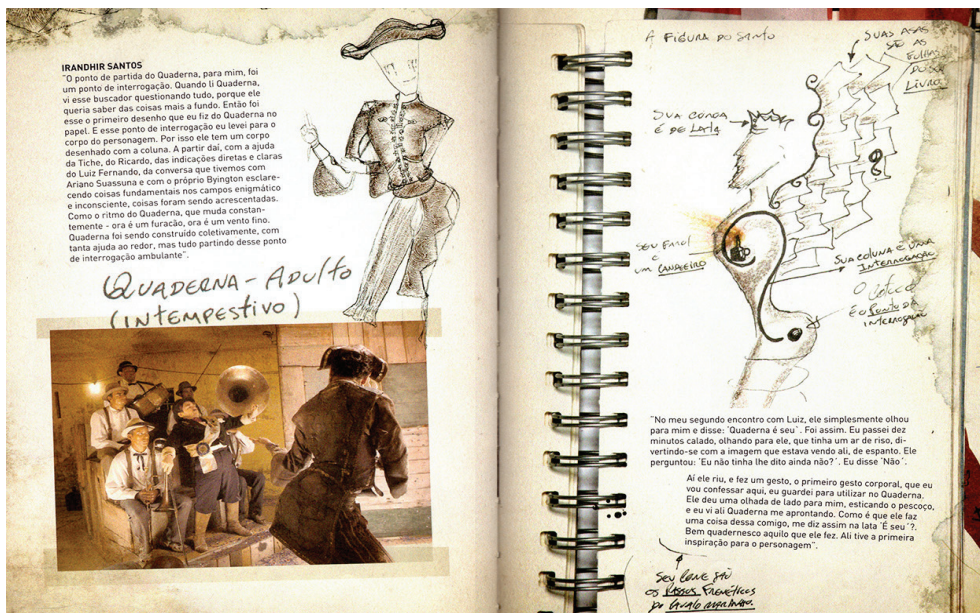 IRANDHIR SANTOS
"O ponto de partida do Quaderna, para mim, foi
um ponto de interrogação. Quando li Quaderna,
vi esse buscador questionando tudo, porque ele
queria saber das coisas mais a fundo. Então foi
esse o primeiro desenho que eu fiz do Quaderna no
papel. E esse ponto de interrogação eu levei para o
corpo do personagem. Por isso ele tem um corpo
desenhado com a coluna. A partir daí, com a ajuda
da Tiche, do Ricardo, das indicações diretas e claras
do Luiz Fernando, da conversa que tivemos com
Ariano Suassuna e com o próprio Byington esclare-
cendo coisas fundamentais nos campos enigmático
e inconsciente, coisas foram sendo acrescentadas.
Como o ritmo do Quaderna, que muda constan-
temente - ora é um furacão, ora é um vento fino.
Quaderna foi sendo construído coletivamente, com
tanta ajuda ao redor, mas tudo partindo desse ponto
de interrogação ambulante".
QUADERNA - ADULTO
(INTEMPESTIVO)
A FIGURA DO SANTO
SUAS ASAS
SÃO AS
FOLHAS
DO
LIVRO
SUA COROA
É DE LATA
SEU FAROL
É
UM CANDEEIRO
SUA COLUNA É UMA
INTERROGAÇÃO
O
É O PONTO DA
INTERROGAÇÃO
"No meu segundo encontro com Luiz, ele simplesmente olhou
para mim e disse: 'Quaderna é seu'. Foi assim. Eu passei dez
minutos calado, olhando para ele, que tinha um ar de riso, di-
vertindo-se com a imagem que estava vendo ali, de espanto. Ele
perguntou: 'Eu não tinha lhe dito ainda não?'. Eu disse 'Não'.
Aí ele riu, e fez um gesto, o primeiro gesto corporal, que eu
vou confessar aqui, eu guardei para utilizar no Quaderna.
Ele deu uma olhada de lado para mim, esticando o pescoço,
e eu vi ali Quaderna me aprontando. Como é que ele faz
uma coisa dessa comigo, me diz assim na lata 'É seu'?.
Bem quadernesco aquilo que ele fez. Ali tive a primeira
inspiração para o personagem".
SEU
OS PASSOS FRENÉTICOS
DO CAVALO MARINHO.